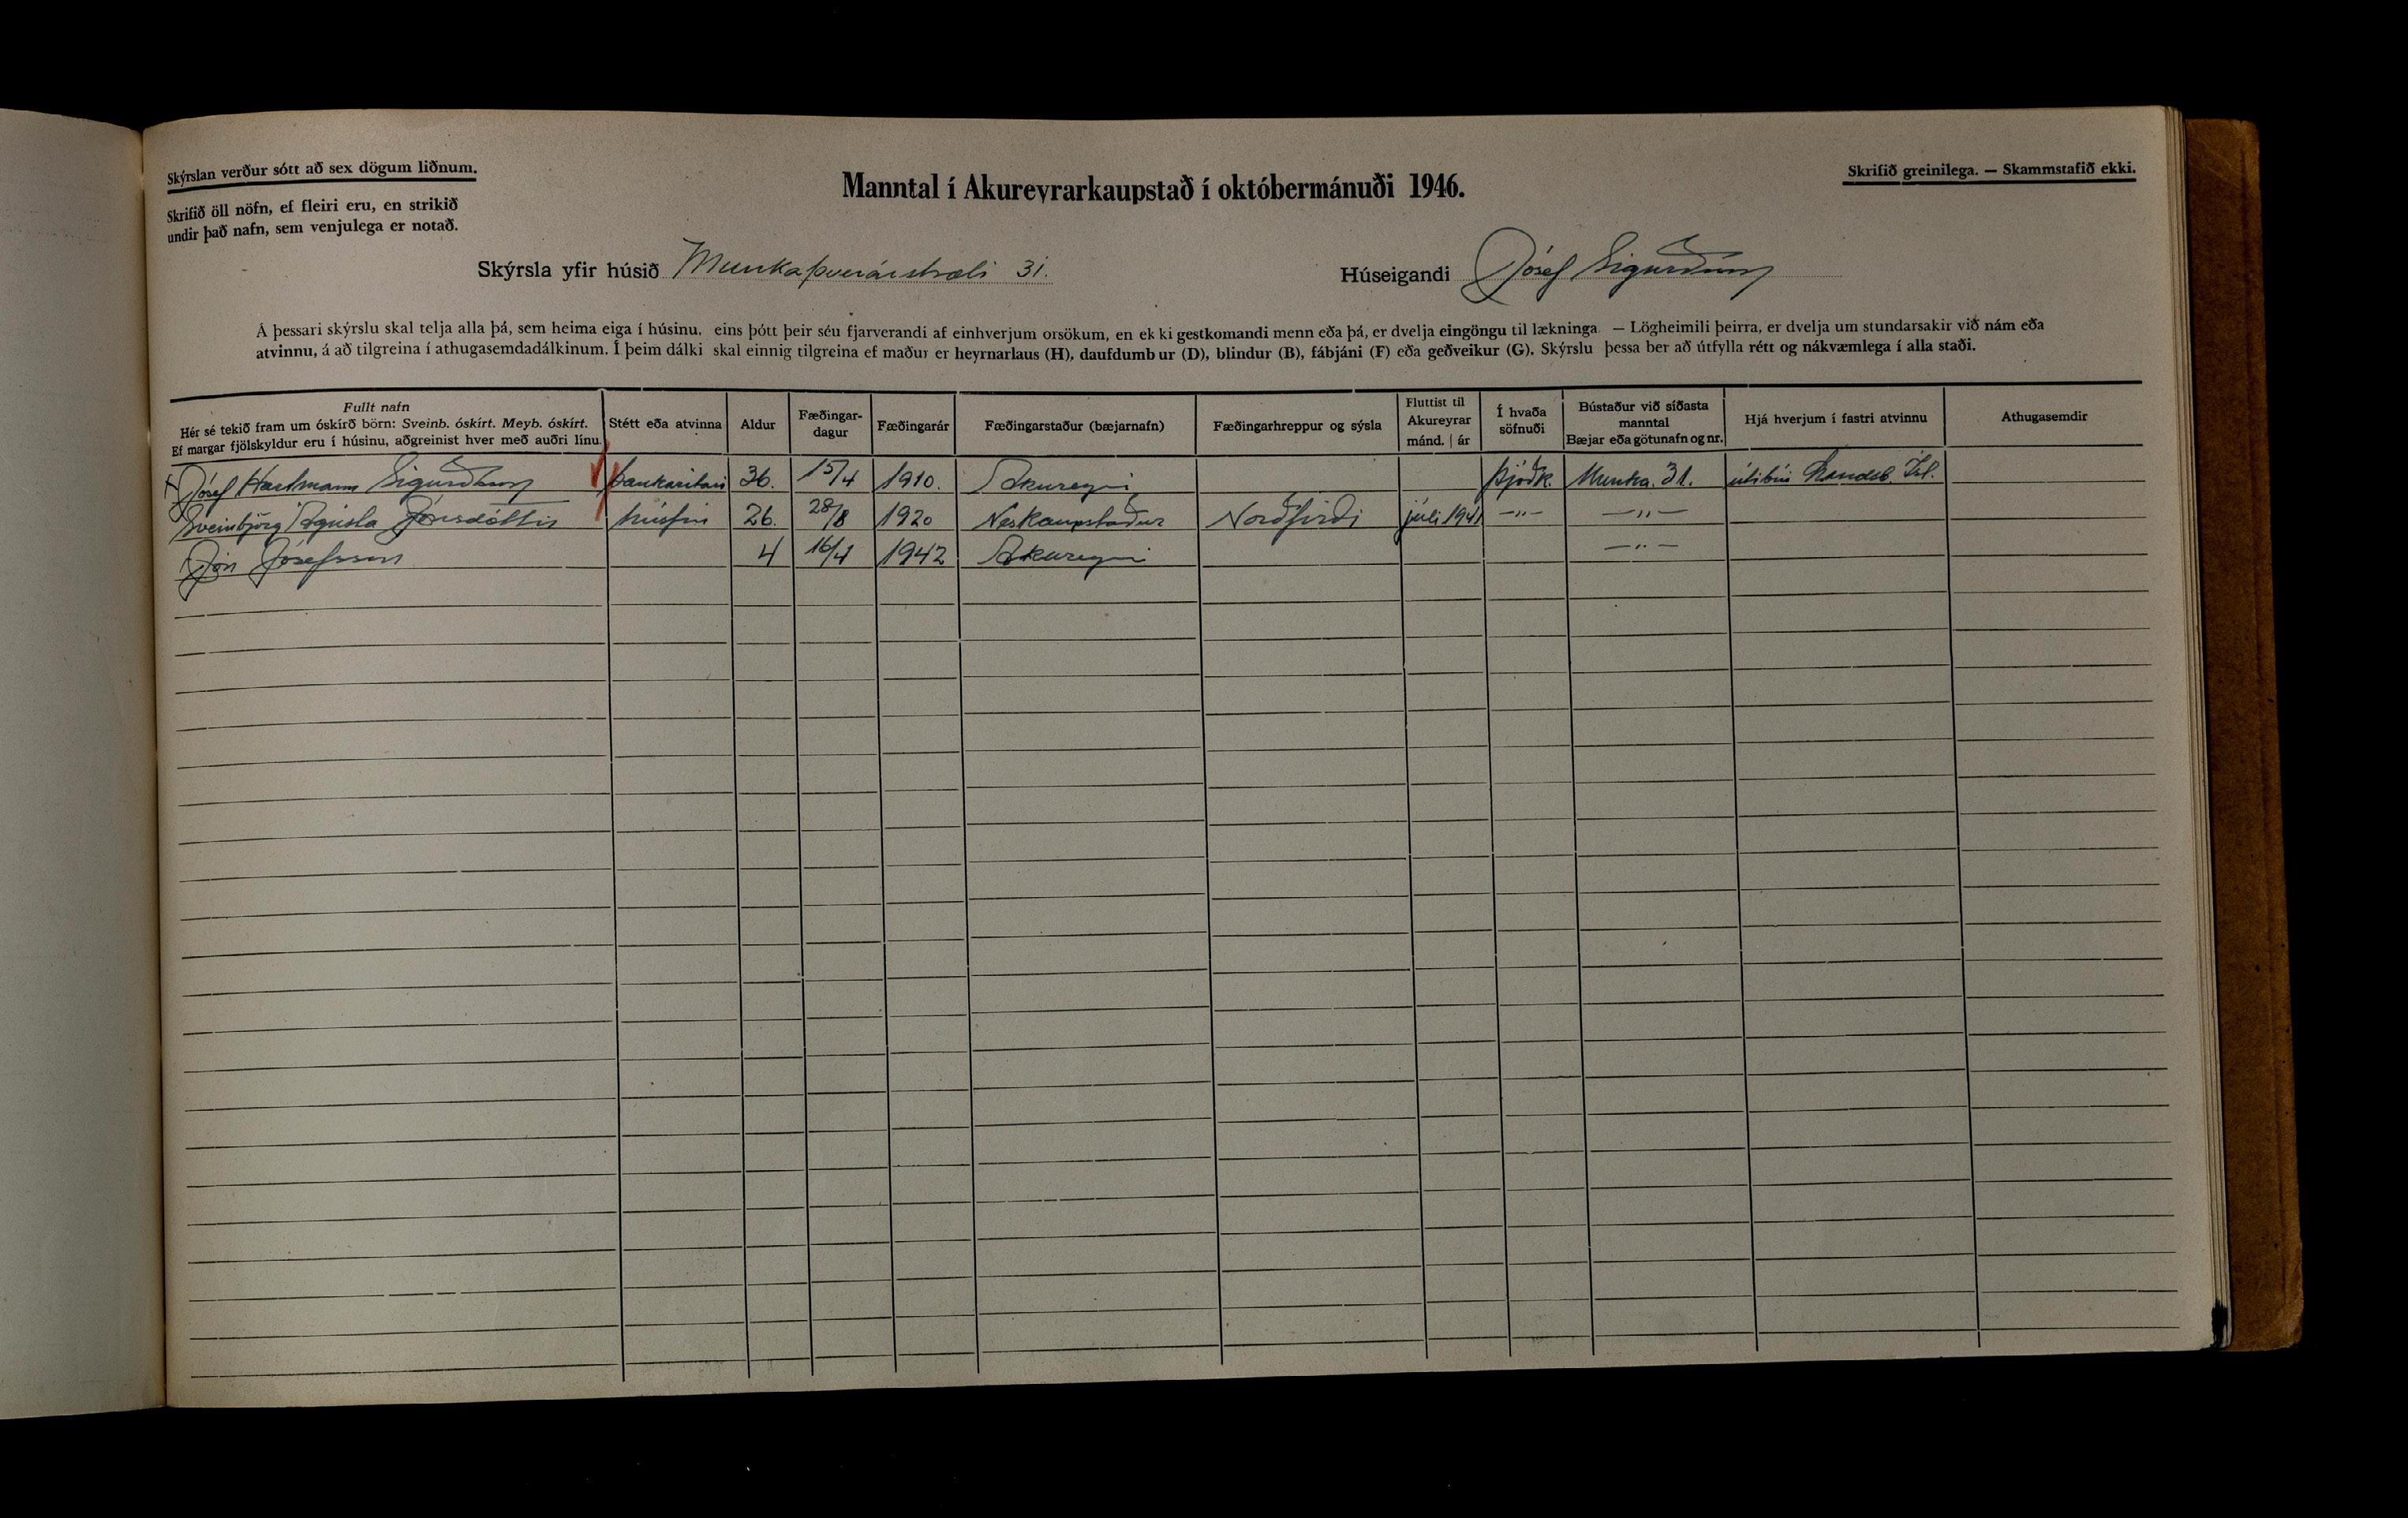 Skýrslan verður sótt að sex dögum liðnum.
Skrifið öll nöfn, ef fleiri eru, en strikið
undir það nafn, sem venjulega er notað.
Manntal í Akureyrarkaupstað í októbermánuði 1946.
Skrifið greinilega. — Skammstafið ekki.
Skýrsla yfir húsið Munkaþverárstræti 31.
Húseigandi Jósef Sigurðsson
Á þessari skýrslu skal telja alla þá, sem heima eiga í húsinu, eins þótt þeir séu fjarverandi af einhverjum orsökum, en ekki gestkomandi menn eða þá, er dvelja eingöngu til lækninga — Lögheimili þeirra, er dvelja um stundarsakir við nám eða
atvinnu, á að tilgreina í athugasemdadálkinum. Í þeim dálki skal einnig tilgreina ef maður er heyrnarlaus (H), daufdumbur (D), blindur (B), fábjáni (F) eða geðveikur (G). Skýrslu þessa ber að útfylla rétt og nákvæmlega í alla staði.
Fullt nafn
Hér sé tekið fram um óskírð börn: Sveinb. óskírt. Meyb. óskírt.
Ef margar fjölskyldur eru í húsinu, aðgreinist hver með auðri línu.
Stétt eða atvinna
Aldur
Fæðingar-
dagur
Fæðingarár
Fæðingarstaður (bæjarnafn)
Fæðingarhreppur og sýsla
Fluttist til
Akureyrar
mánd. | ár
Í hvaða
söfnuði
Bústaður við síðasta
manntal
Bæjar eða götunafn og nr.
Hjá hverjum í fastri atvinnu
Athugasemdir
Jósef Hartmann Sigurðsson bankaritari 36. 15/4 1910. Akureyri Þjóðk. Munka. 31. útibúi Landsb. Ísl.
Sveinbjörg Ágústa Jónsdóttir húsfrú 26. 28/8 1920 Neskaupstaður Norðfirði júlí 1941 —"— —"—
Jón Jósefsson 4 16/4 1942 Akureyri —"—